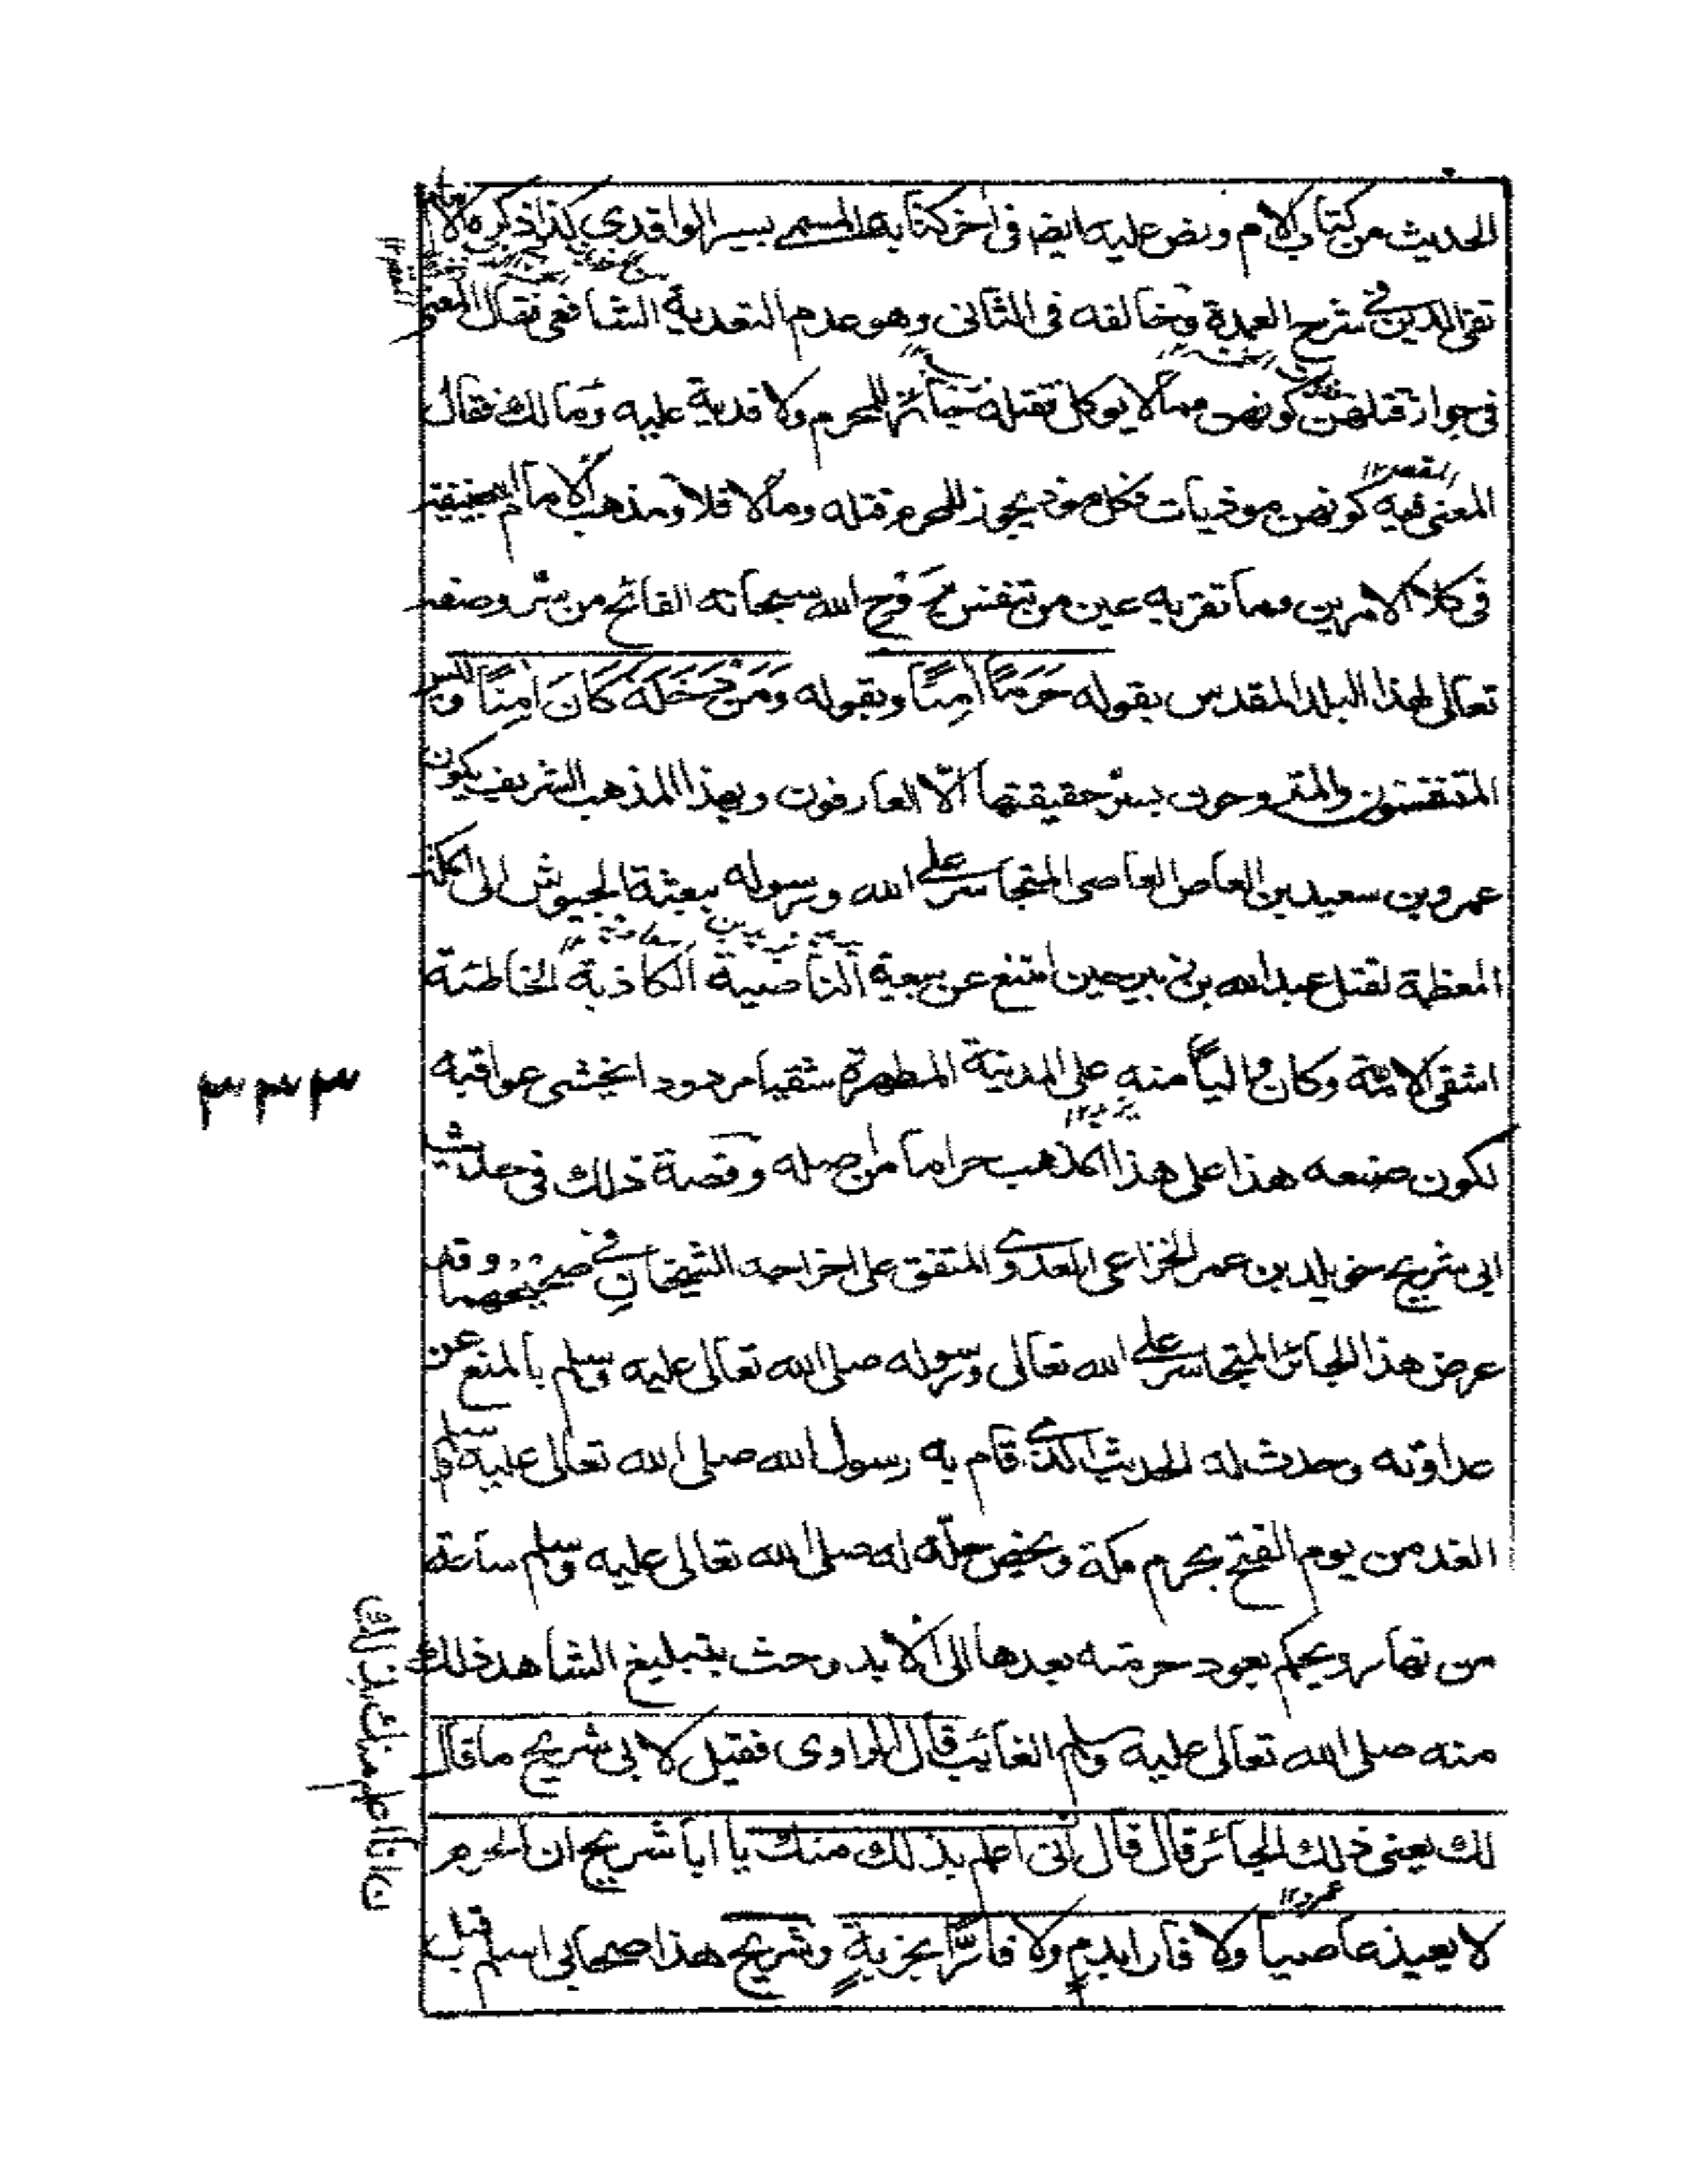 الحديث من كتاب الام ونص عليه ايضا فى اخر كتابه المسمى بسير الواقدي كذا ذكره الامام
تقى الدين في شرح العمدة وخالفه فى الثانى وهو عدم التعدية الشافعى فقال المعنى
فى جواز قتلهن كونهن مما لا يوكل فقتله جائز للمحرم ولا فدية عليه ومالك فقال
المعنى فيه كونهن موذيات فكل موذ يجوز للمحرم قتله وما لا فلا ومذهب الامام
فى كلا الامرين مما تقربه عين من تنفس فوح الله سبحانه الفائح من وصفه
تعالى لهذا البلد المقدس بقوله حَرَمًا اٰمِنًا وبقوله وَمَنْ دَخَلَهٗ كَانَ اٰمِنًا
المتنفسون والمتروحون بسر حقيقتها الّا العارفون وبهذا المذهب الشريف يكون
عمرو بن سعيد بن العاص العاصى المتجاسر على الله ورسوله ببعثة الجيوش الى مكة
المعظمة لقتل عبد الله بن زبير حين امتنع عن بيعة الناصية الكاذبة الخاطئة
اشقى الامة وكان واليًا منه على المدينة المطهرة شقيا مردودا يخشى عواقبه
لكون صنعه هذا على هذا المذهب حراما من اصله وقصة ذلك فى حديث
ابى شريح خويلد بن عمر الخزاعى العدوى المتفق على اخراجه الشيخان في صحيحهما وقد
عرض هذا الجائر المتجاسر على الله تعالى ورسوله صلى الله تعالى عليه وسلم بالمنع عن
عداوته وحدث له الحديث الذى قام به رسول الله صلى الله تعالى عليه وسلم
الغد من يوم الفتح بحرم مكة وبخص حلّه له صلى الله تعالى عليه وسلم ساعة
من نهار وبحكم بعود حرمته بعدها الى الابد وحث بتبليغ الشاهد ذلك
منه صلى الله تعالى عليه وسلم الغائب قال الراوى فقيل لابى شريح ما قال
لك يعنى ذلك الجائر قال قال انى اعلم بذلك منك يا ابا شريح ان الحرم
لا يعيذ عاصيا ولا فارا بدمٍ ولا فارًّا بخربةٍ وشريح هذا صحابى اسلم قبل
٣٣٣